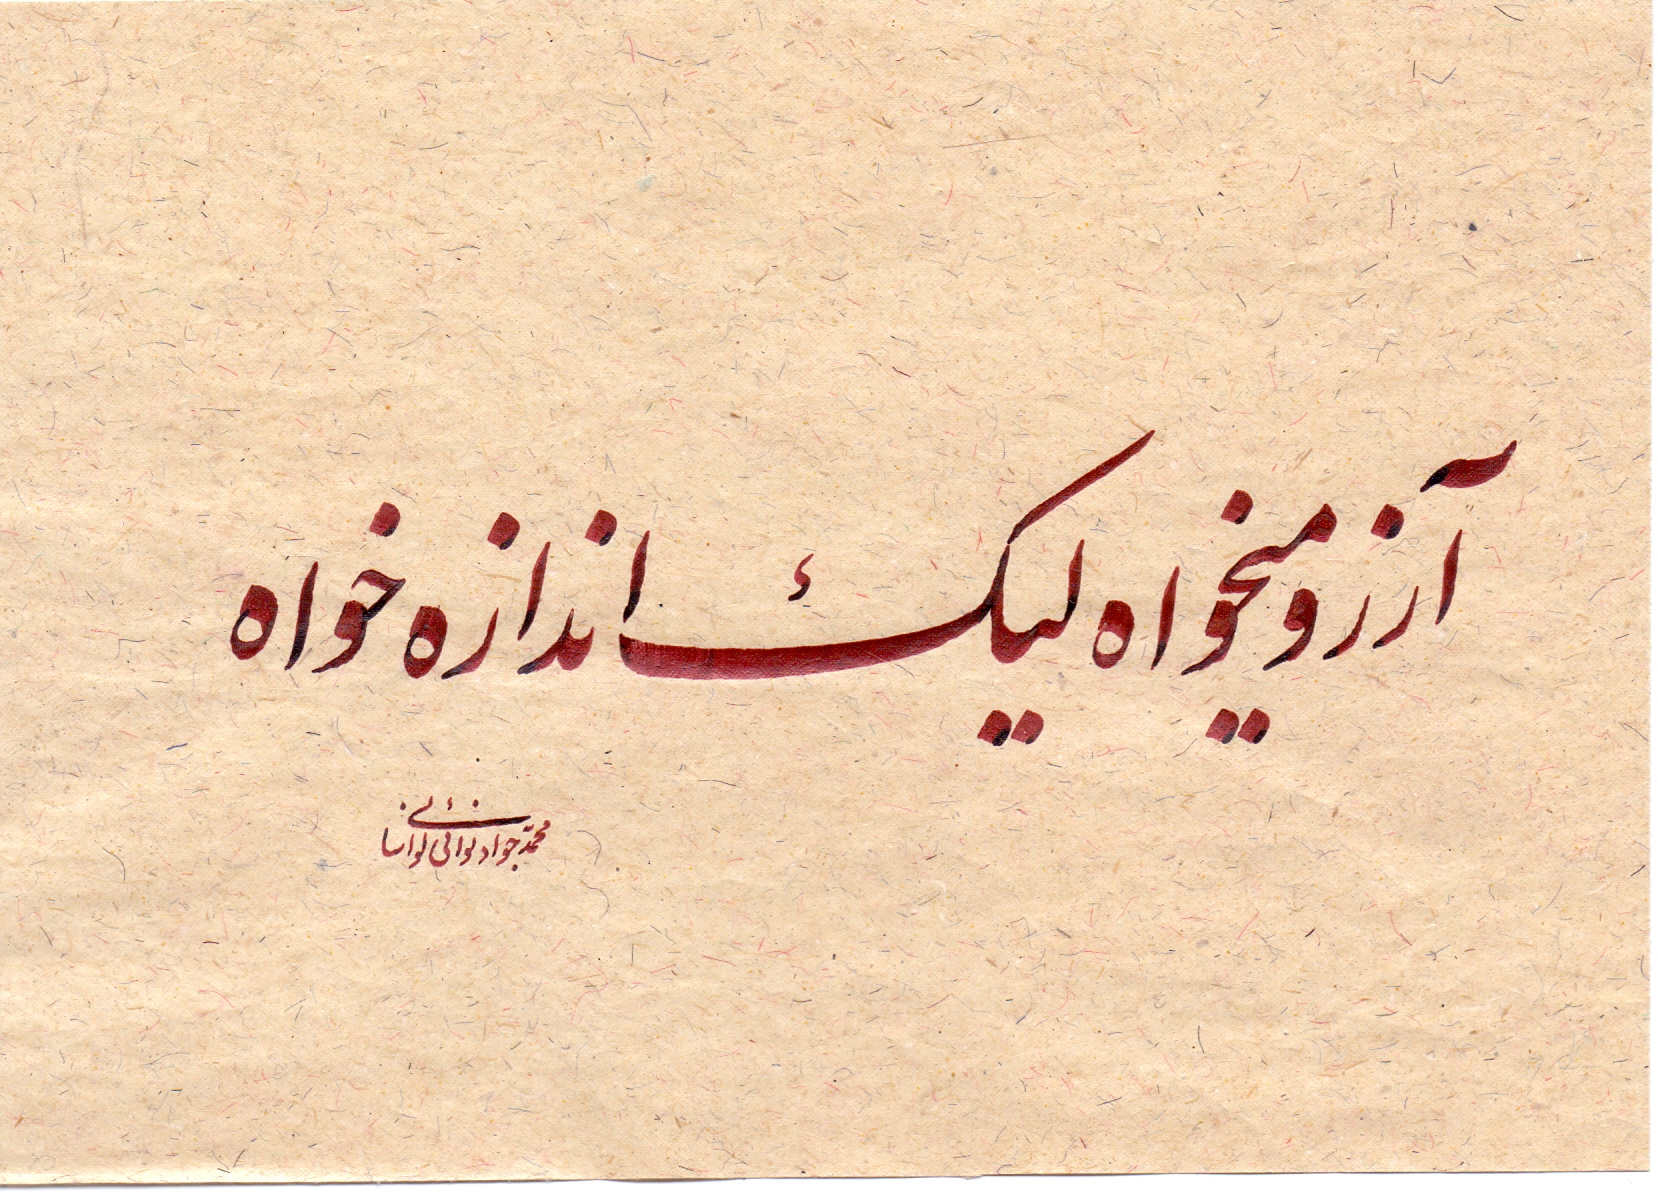 آرزو میخواه لیک اندازه خواه
محمّد جواد نوائی لواسانی